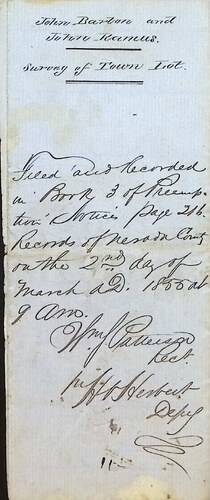 John Barbon and
John Ramus.
Survey of Town Lot.
Filed and Recorded
in Book 3 of Preemp-
tion Notices Page 216.
Records of Nevada County
on the 2nd day of
March A.D. 1855 at
9 A.M.
Wm J Patterson
Rect.
pr H Herbert
Depy